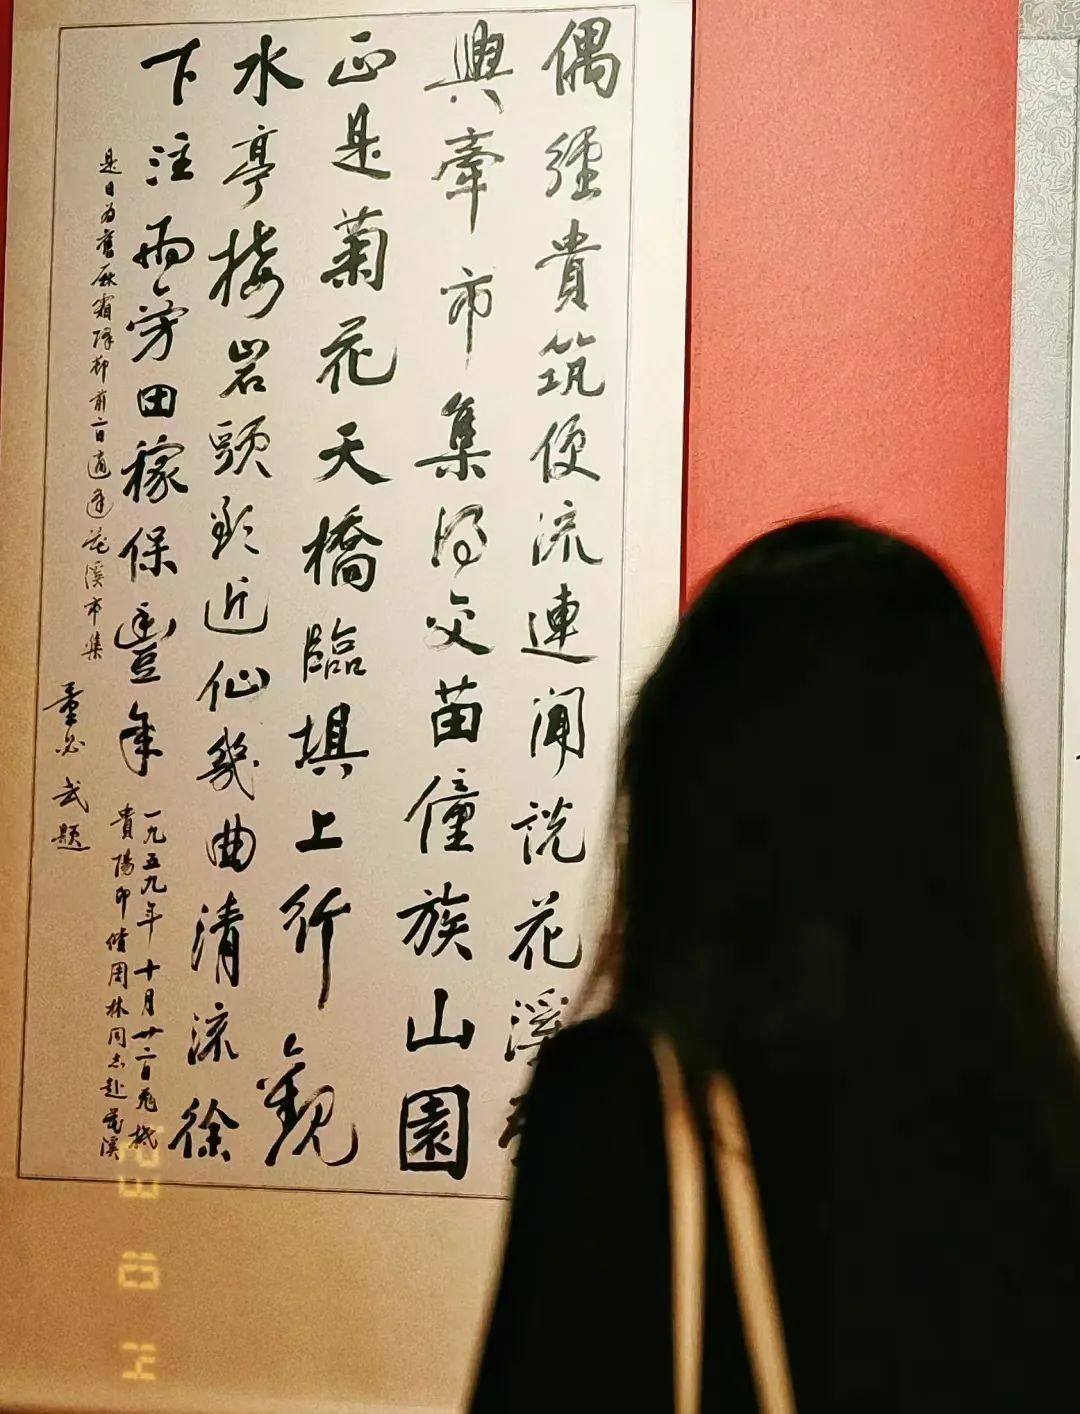 偶經貴筑便流連聞説花溪
興牽市集得交苗僮族山園
正是菊花天橋臨埧上行觀
水亭梅岩頭影近仙幾曲清流徐
下注兩旁田稼保豐年
一九五九年十月廿二日飛抵
貴陽即偕周林同志赴花溪
是日為舊厤霜降節前二日適逢花溪市集
董必武題